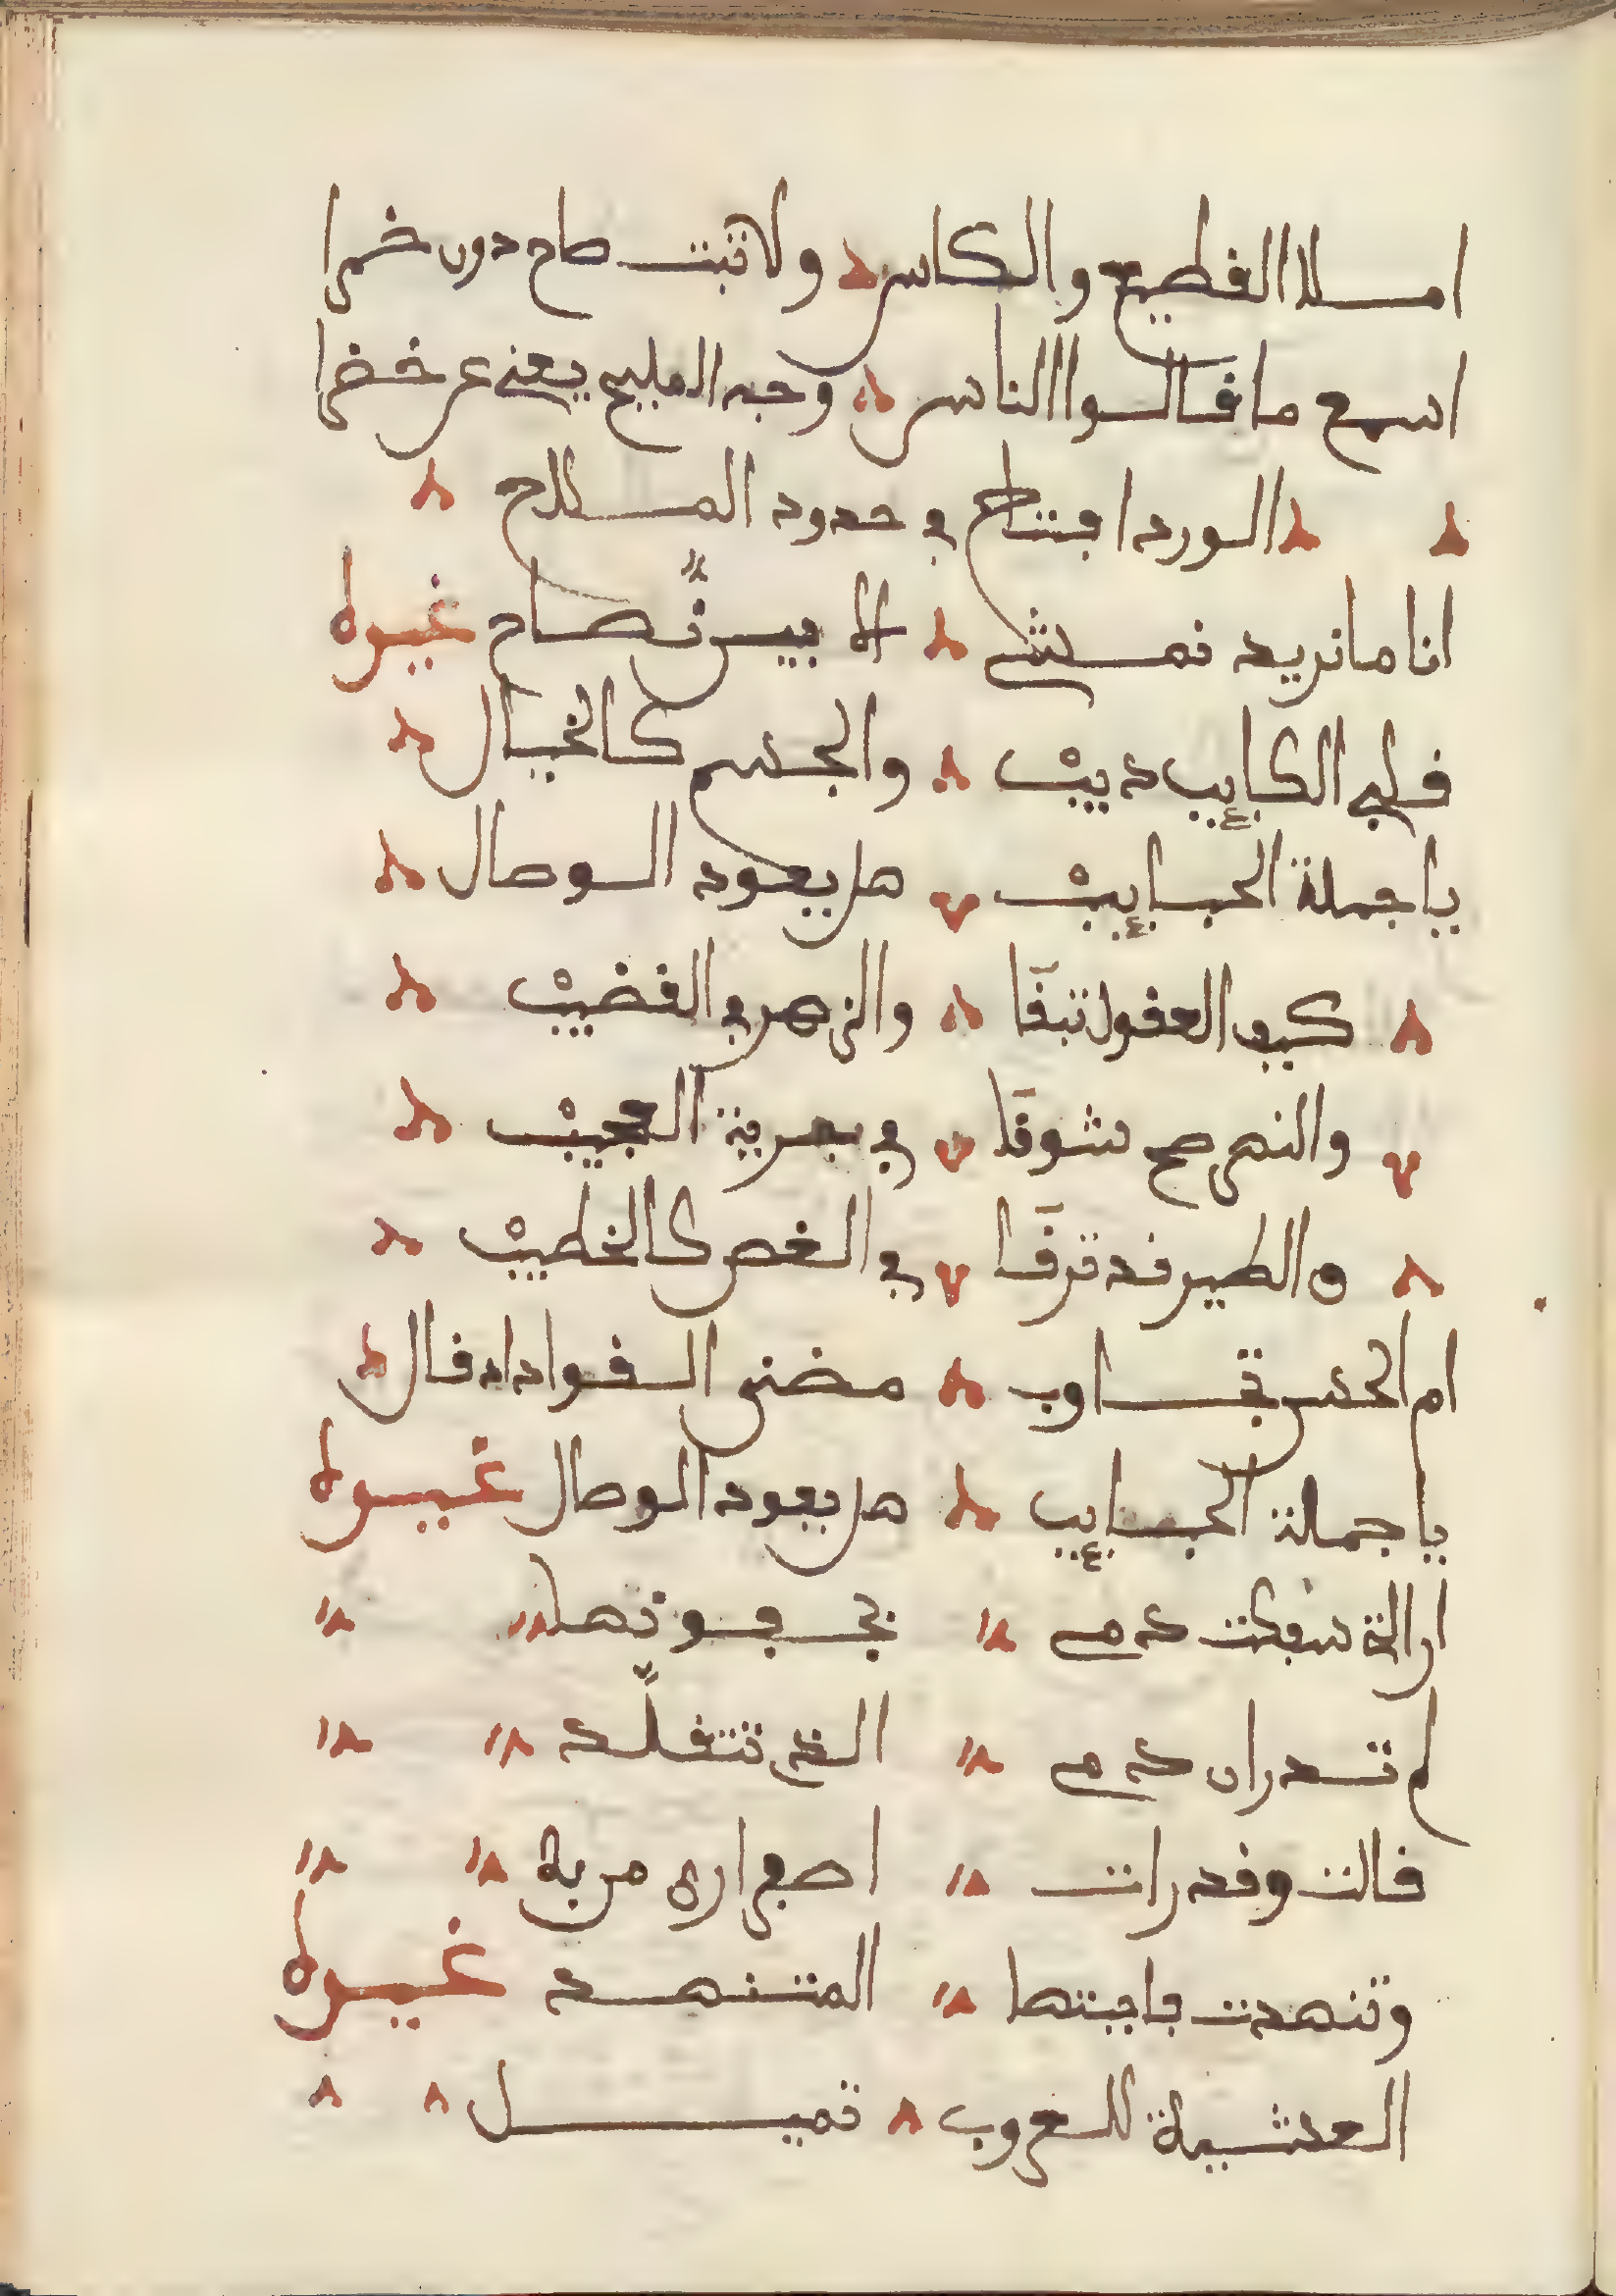 املا القطيع والكاس ولا تبت صاح دون خمرا
اسمع ما قالوا الناس وجه المليح يغني عن خضرا
الورد افتتاح في خدود الملاح
انا ما نريد نمشي الا بين نصاح غيره
قلبي الكايب ذيب والجسم كالخيال
يا جملة الحبايب هل يعود الوصال
كيف العقول تبقا والزهر في القضيب
والنهر صح شوقا في جرية العجيب
والطير قد ترقا في الغصن كالخطيب
ام الحسن تجاوب مضنى الفواد اذ قال
يا جملة الحبايب هل يعود الوصال غيره
ان التي سفكت دمي بجفونها
لم تدر ان دمي الذي تتقلد
قالت وقد رات اصفراري من به
وتنهدت فاجبتها المتنهد غيره
العشية للغروب تميل